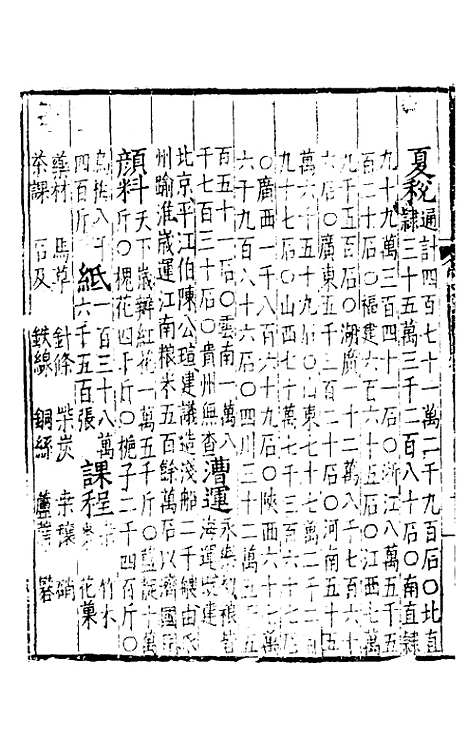 夏税通計四百七十一萬二千九百石〇北直
隸三十五萬三千二百八十石〇南直隸
九十九萬三百四十一石〇浙江八萬五千五
百二十石〇福建六百六十五石〇江西七萬
九千五百石〇湖廣一十二萬八千七百六十
六石〇廣東五千三百二十石〇河南五十五
萬六千五十九石〇山東七十七萬二千二
九十七石〇山西七十萬七千三百六十七石
〇廣西一千八百六十九石〇陝西六十七萬
六千九百八十六石〇四川三十二萬五千
百五十一石〇雲南一萬八
千七百三十石〇貴州無查
漕運永樂初粮皆
海運建
北京平江伯陳公瑄建議造淺船二千艘由
州踰淮歲運江南粮米五百餘萬石以濟國
顔料天下歲辦紅花一萬五千斤〇藍靛十萬
斤〇槐花四千斤〇梔子二千四百斤〇
烏梅八千
四百斤
紙一百三十八萬
六千五百張
課程 竹木
花菓
藥材 馬草 針條 柴炭 桑穰 硝
茶課 鐵線 銅絲 箬